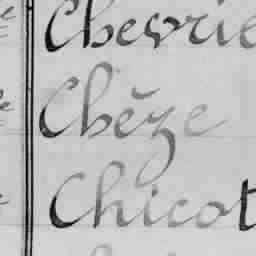 Chevrie
Chèze
Chicot